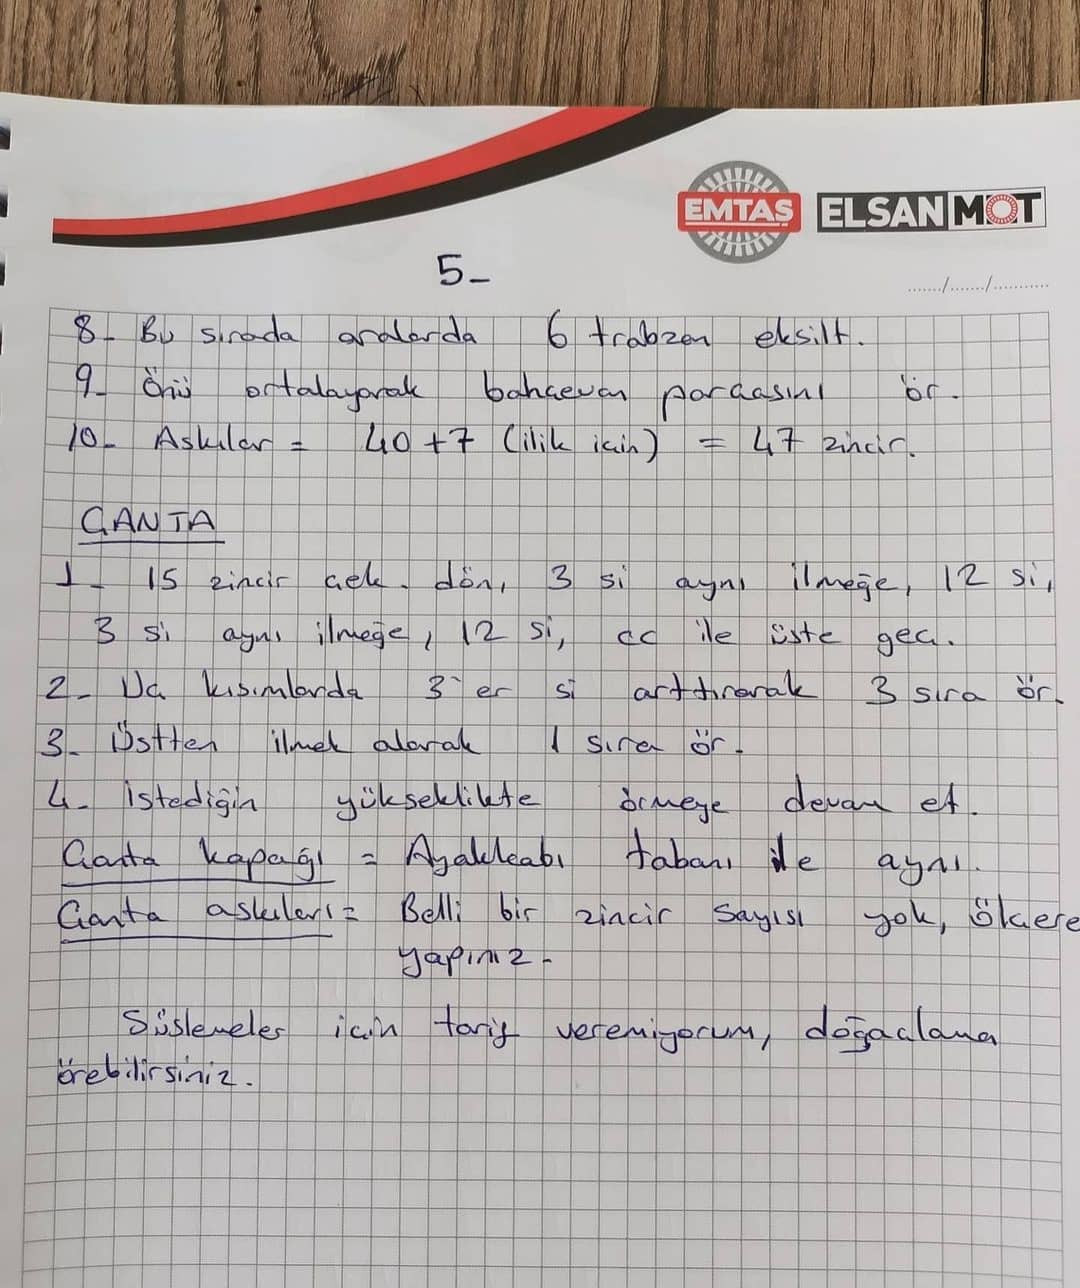 EMTAŞ ELSAN MOT
5-
...../...../..........
8- Bu sırada aralarda 6 trabzan eksilt.
9- Önü ortalayarak bahçevan parçasını ör.
10- Askılar = 40 +7 (ilik için) = 47 zincir.
ÇANTA
1- 15 zincir çek. dön, 3 si aynı ilmeğe, 12 si,
3 si aynı ilmeğe, 12 si, cc ile üste geç.
2- Uç kısımlarda 3'er si arttırarak 3 sıra ör.
3- Üstten ilmek alarak 1 sıra ör.
4- İstediğin yükseklikte örmeye devam et.
Çanta kapağı = Ayakkabı tabanı ile aynı.
Çanta askıları = Belli bir zincir sayısı yok, ölçere
yapınız-
Süslemeler için tarif veremiyorum, doğaçlama
örebilirsiniz.